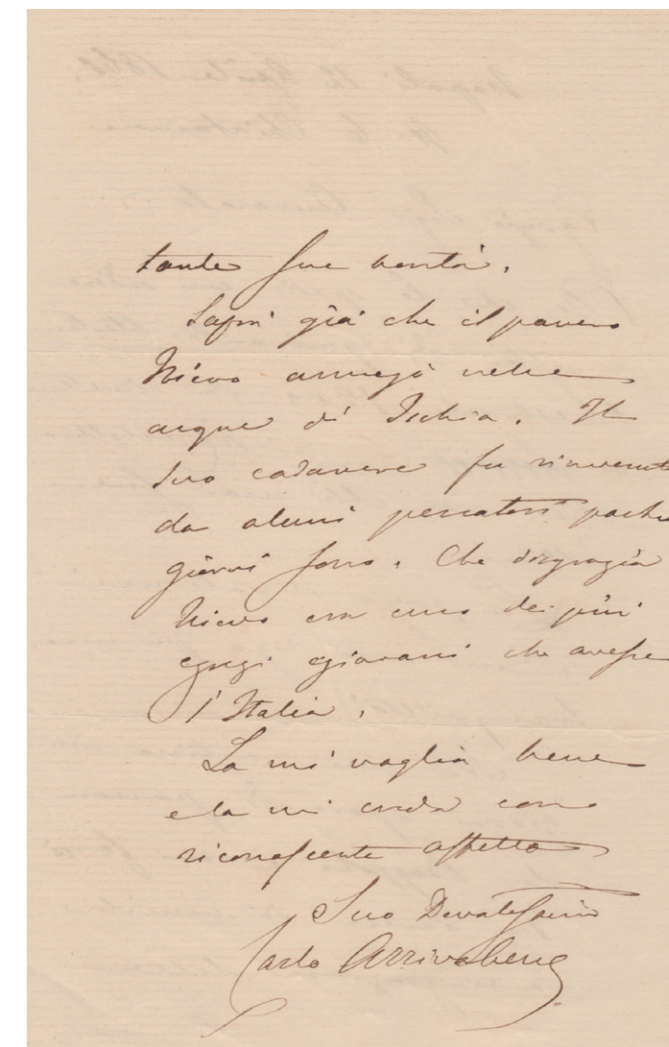 tante sue bontà.
Saprà già che il povero
Nievo annegò nelle
acque di Ischia. Il
suo cadavere fu rinvenuto
da alcuni pescatori pochi
giorni sono. Che disgrazia
Nievo era uno dei più
egregi giovani che avesse
l'Italia.
La mi voglia bene
e la mi creda con
riconoscente affetto
Suo Devotessimo
Carlo Arrivabene